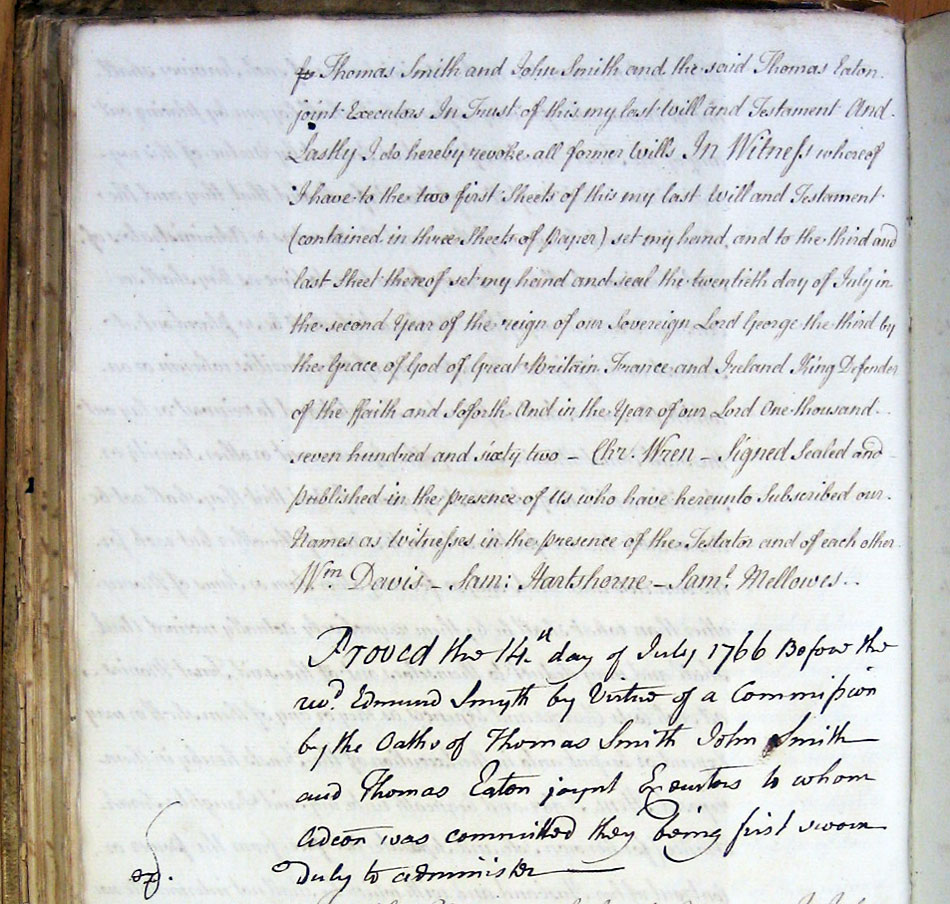 Thomas Smith and John Smith and the said Thomas Eaton
joint Executors In Trust of this my last will and Testament And
Lastly I do hereby revoke all former Wills In Witness whereof
I have to the two first Sheets of this my last Will and Testament
(contained in three Sheets of paper) set my hand and to the third and
last Sheet thereof set my hand and seal the twentieth day of July in
the second Year of the reign of our Sovereign Lord George the third by
the Grace of God of Great Britain France and Ireland King Defender
of the ffaith and Soforth And in the Year of our Lord One thousand
seven hundred and sixty two – Chr. Wren – Signed Sealed and
published in the presence of Us who have hereunto Subscribed our
Names as Witnesses in the presence of the Testator and of each other
Wm Davis – Sam: Hartshorne – Saml. Mellowes
Proved the 14th day of July 1766 Before the
revd. Edmund Smyth by Virtue of a Commission
by the Oaths of Thomas Smith John Smith
and Thomas Eaton joynt Exeutors to whom
adcon was committed they being first sworn
Duly to administer